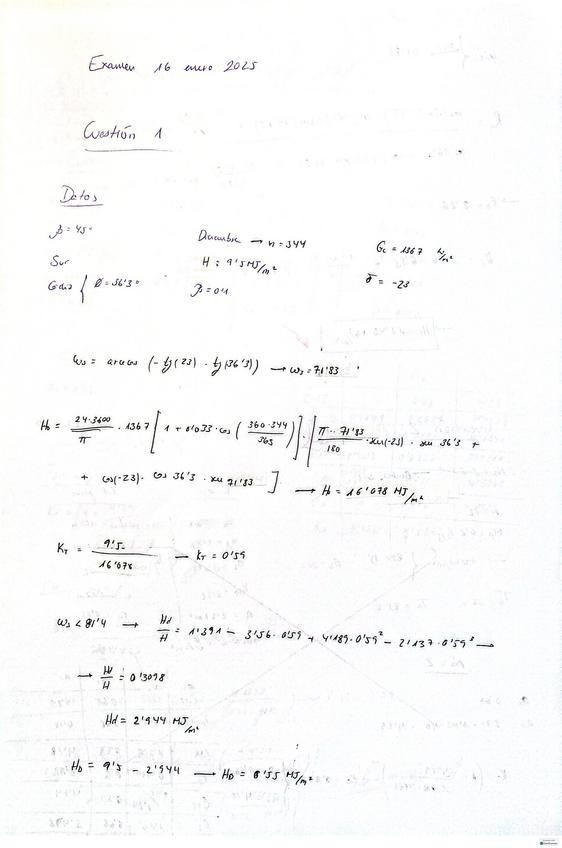 Examen 16 enero 2025
Cuestión 1
Datos
β = 45°
Sur
Cádiz { Ø = 36'3°
Diciembre → n = 344
H = 9'5 MJ/m²
ρ = 0'1
Gc = 1367 W/m²
δ = -23
ωs = arccos (-tg(23) · tg(36'3)) → ωs = 71'83
Ho = 24·3600/π · 1367 [ 1 + 0'033 · cos ( 360·344/365 ) ] · [ π · 71'83/180 · sen(-23) · sen 36'3 +
+ cos(-23) · cos 36'3 · sen 71'83 ] → Ho = 16'078 MJ/m²
KT = 9'5/16'078 → KT = 0'59
ωs < 81'4 → Hd/H = 1'391 - 3'56 · 0'59 + 4'189 · 0'59² - 2'137 · 0'59³ →
→ Hd/H = 0'3098
Hd = 2'944 MJ/m²
HD = 9'5 - 2'944 → HD = 6'55 MJ/m²